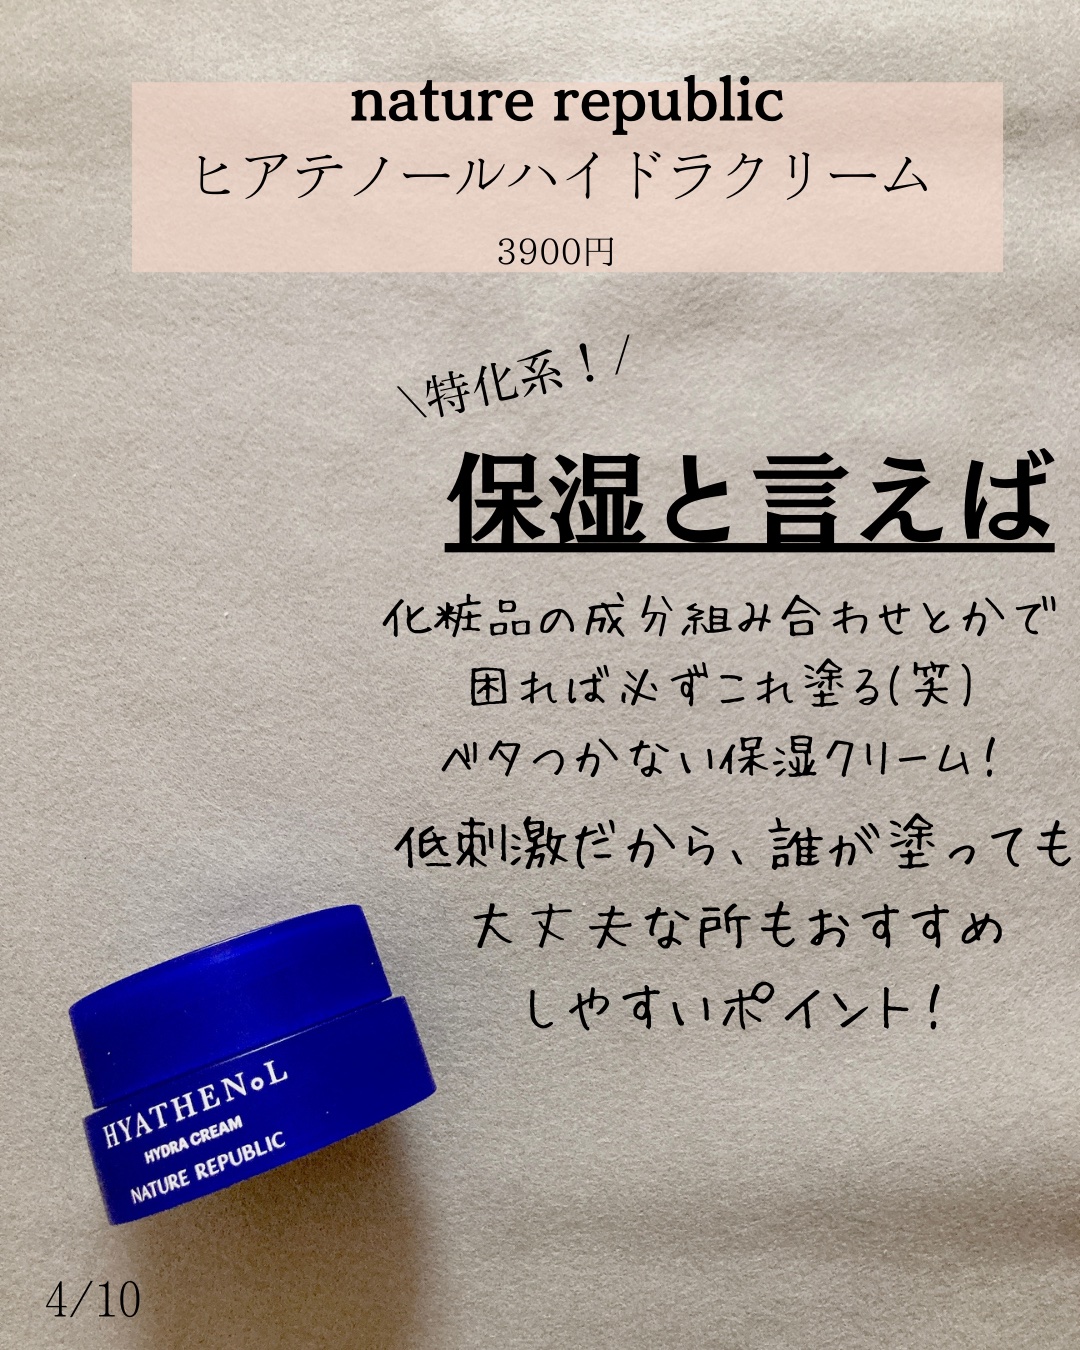 nature republic
ヒアテノールハイドラクリーム
3900円
\特化系！/
保湿と言えば
化粧品の成分組み合わせとかで
困れば必ずこれ塗る(笑)
ベタつかない保湿クリーム！
低刺激だから、誰が塗っても
大丈夫な所もおすすめ
しやすいポイント！
HYATHENOL
HYDRA CREAM
NATURE REPUBLIC
4/10